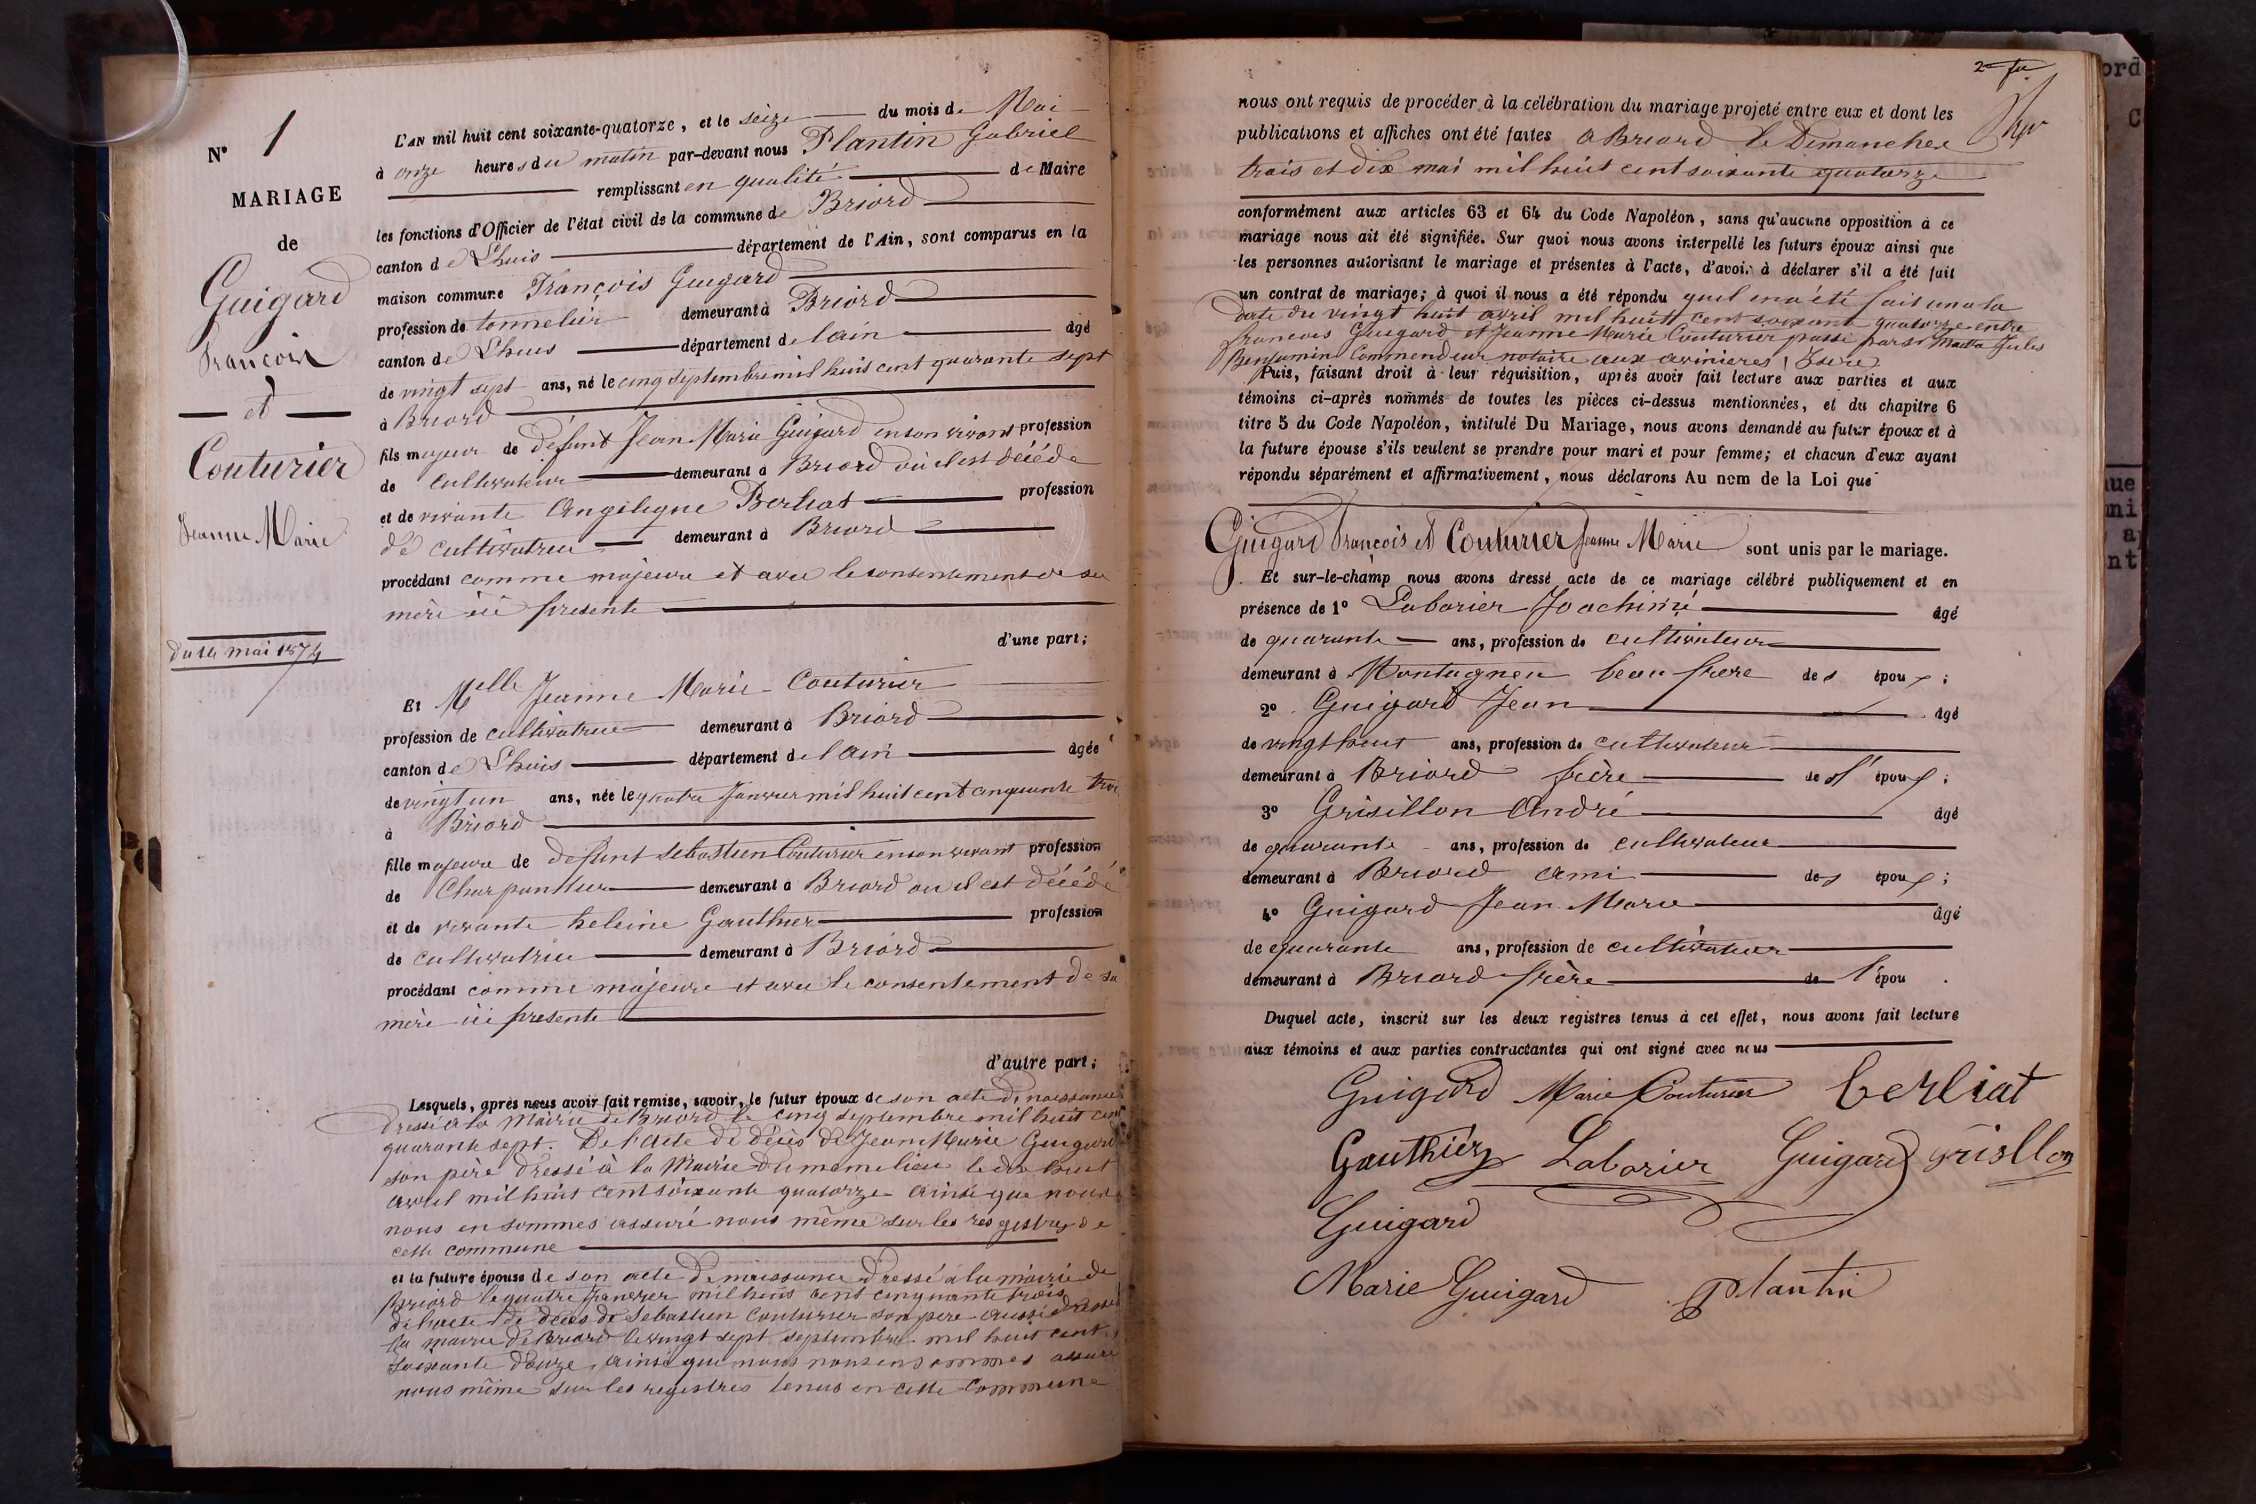 N° 1
MARIAGE
de
Guigard
François
et
Couturier
Jeanne Marie
du 16 mai 1874
L'AN mil huit cent soixante-quatorze, et le seize du mois de Mai
à onze heures du matin par-devant nous Plantin Gabriel
remplissant en qualité de Maire
les fonctions d'Officier de l'état civil de la commune de Briord
canton de Lhuis département de l'Ain, sont comparus en la
maison commune François Guigard
profession de tonnelier demeurant à Briord
canton de Lhuis département de lain âgé
de vingt sept ans, né le cinq septembre mil huit cent quarante sept
à Briord
fils majeur de défunt Jean Marie Guigard en son vivant profession
de cultivateur demeurant à Briord où il est décédé
et de vivante Angéligne Berliat profession
de cultivatrice demeurant à Briord
procédant comme majeure et avec le consentement de sa
mère ici presente
d'une part;
Et Melle Jeanne Marie Couturier
profession de cultivatrice demeurant à Briord
canton de Lhuis département de lain âgée
de vingt un ans, née le quatre Janvier mil huit cent cinquante trois
à Briord
fille majeure de defunt Sebastien Couturier en son vivant profession
de Charpantier demeurant à Briord ou il est décédé
et de vivante heleine Gauthier profession
de cultivatrice demeurant à Briord
procédant comme majeure et avec le consentement de sa
mère ici presente
d'autre part;
Lesquels, après nous avoir fait remise, savoir, le futur époux de son acte de naissance
dressé à la Mairie de Briord le cinq septembre mil huit cent
quarante sept. De l'acte de décès de Jean Marie Guigard
son père dressé à la Mairie du meme lieu le dix huit
avril mil huit cent soixante quatorze ainsi que nous
nous en sommes assuré nous même sur les registres de
cette commune
et la future épouse de son acte de naissance dressé à la mairie de
Briord le quatre Janvier mil huit cent cinquante trois
de l'acte de décès de Sebastien Couturier son pere aussi dressé
la mairie de Briord le vingt sept septembre mil huit cent
soixante douze, ainsi que nous nous en sommes assuré
nous même sur les registres tenus en cette Commune
2e fu
nous ont requis de procéder à la célébration du mariage projeté entre eux et dont les
publications et affiches ont été faites à Briord le Dimanches
trois et dix mai mil huit cent soixante quatorze
conformément aux articles 63 et 64 du Code Napoléon, sans qu'aucune opposition à ce
mariage nous ait été signifiée. Sur quoi nous avons interpellé les futurs époux ainsi que
les personnes autorisant le mariage et présentes à l'acte, d'avoir à déclarer s'il a été fait
un contrat de mariage; à quoi il nous a été répondu quil en a été fait un a la
date du vingt huit avril mil huit cent soixante quatorze entre
francois Guigard et Jeanne Marie Couturier passé par Jules
Benjamin Commendeur notaire aux avinieres Isère
Puis, faisant droit à leur réquisition, après avoir fait lecture aux parties et aux
témoins ci-après nommés de toutes les pièces ci-dessus mentionnées, et du chapitre 6
titre 5 du Code Napoléon, intitulé Du Mariage, nous avons demandé au futur époux et à
la future épouse s'ils veulent se prendre pour mari et pour femme; et chacun d'eux ayant
répondu séparément et affirmativement, nous déclarons Au nom de la Loi que
Guigard François et Couturier Jeanne Marie sont unis par le mariage.
Et sur-le-champ nous avons dressé acte de ce mariage célébré publiquement et en
présence de 1° Laborier Joachim âgé
de quarante ans, profession de cultivateur
demeurant à Montagneu beau frere des époux;
2° Guigard Jean âgé
de vingt huit ans, profession de cultivateur
demeurant à Briord frère de l'époux;
3° Grisillon André âgé
de quarante ans, profession de cultivateur
demeurant à Briord ami des époux;
4° Guigard Jean Marie âgé
de quarante ans, profession de cultivateur
demeurant à Briord frère de l'épou
Duquel acte, inscrit sur les deux registres tenus à cet effet, nous avons fait lecture
aux témoins et aux parties contractantes qui ont signé avec nous
Guigard Marie Couturier berliat
Gauthier Laborier Guigard Grisllon
Guigard
Marie Guigard plantin